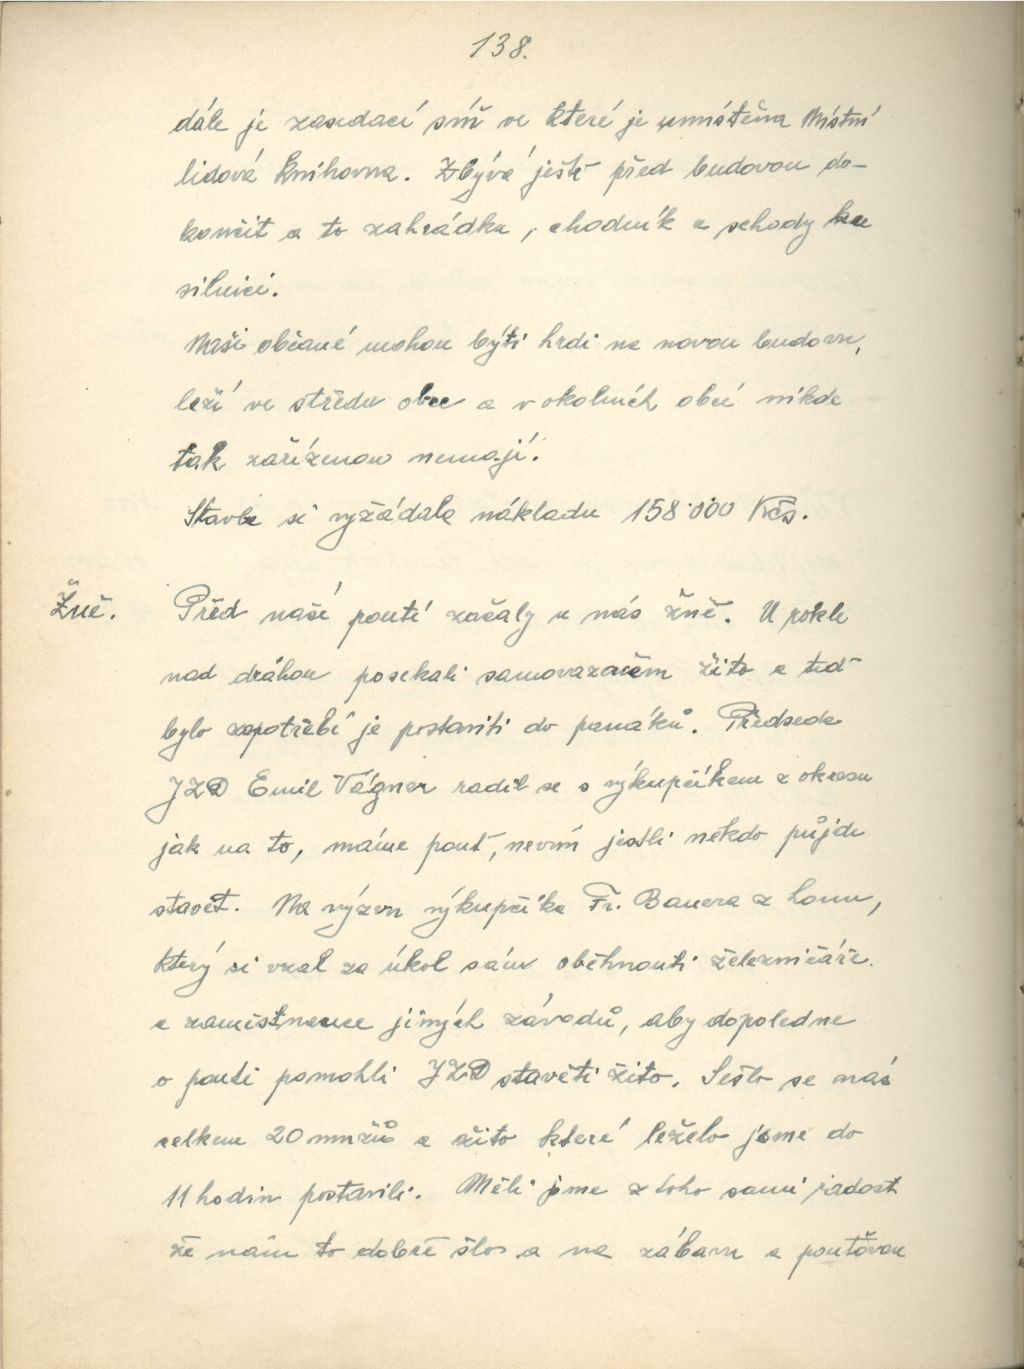 138.
dále je zasedací síň ve které je umístěna Místní
lidová knihovna. Zbývá ještě před budovou do-
končit a to zahrádku, chodník a schody ku
silnici.
Naši občané mohou býti hrdi na novou budovu,
leží ve středu obce a v okolních obcí nikde
tak zařízenou nemají.
Stavba si vyžádala nákladu 158.000 Kčs.
Žně. Před naší poutí začaly u nás žně. U rokle
nad dráhou posekali samovazačem žito a teď
bylo zapotřebí je postaviti do panáků. Předseda
JZD Emil Vágner radil se s výkupčíkem z okresu
jak na to, máme pouť, nevím jestli někdo půjde
stavět. Na výzvu výkupčíka Fr. Bauera z Lomu,
který si vzal za úkol sám oběhnouti železničáře
a zaměstnance jiných závodů, aby dopoledne
o pouti pomohli JZD stavěti žito. Sešlo se nás
celkem 20 mužů a žito které leželo jsme do
11 hodin postavili. Měli jsme z toho sami radost
že nám to dobře šlo a na zábavu a pouťovou